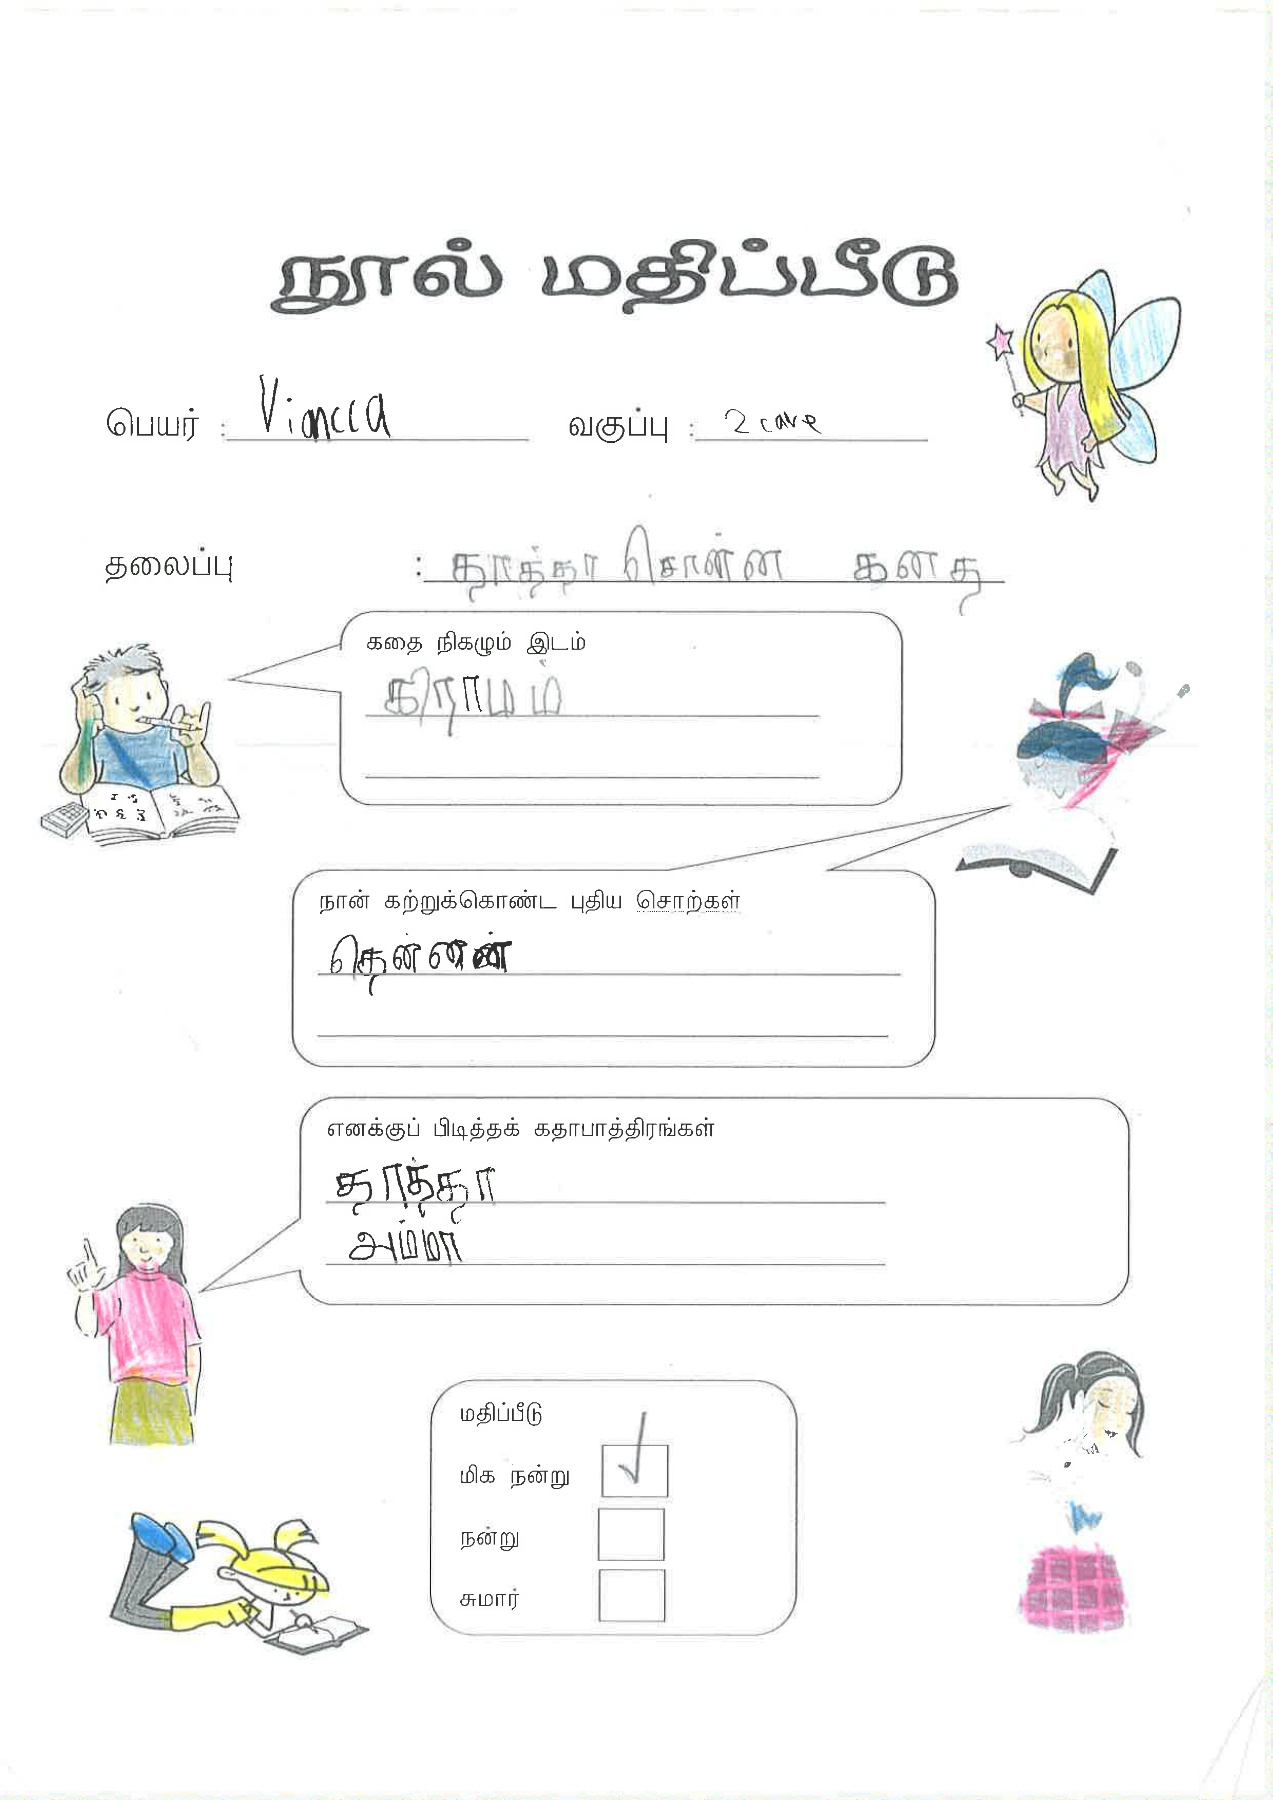 நூல் மதிப்பீடு
பெயர் : Viancca வகுப்பு : 2 care
தலைப்பு : தாத்தா சொன்ன கதை
கதை நிகழும் இடம்
கிராமம்
நான் கற்றுக்கொண்ட புதிய சொற்கள்
எனக்குப் பிடித்தக் கதாபாத்திரங்கள்
தாத்தா
அம்மா
மதிப்பீடு
மிக நன்று
நன்று
சுமார்